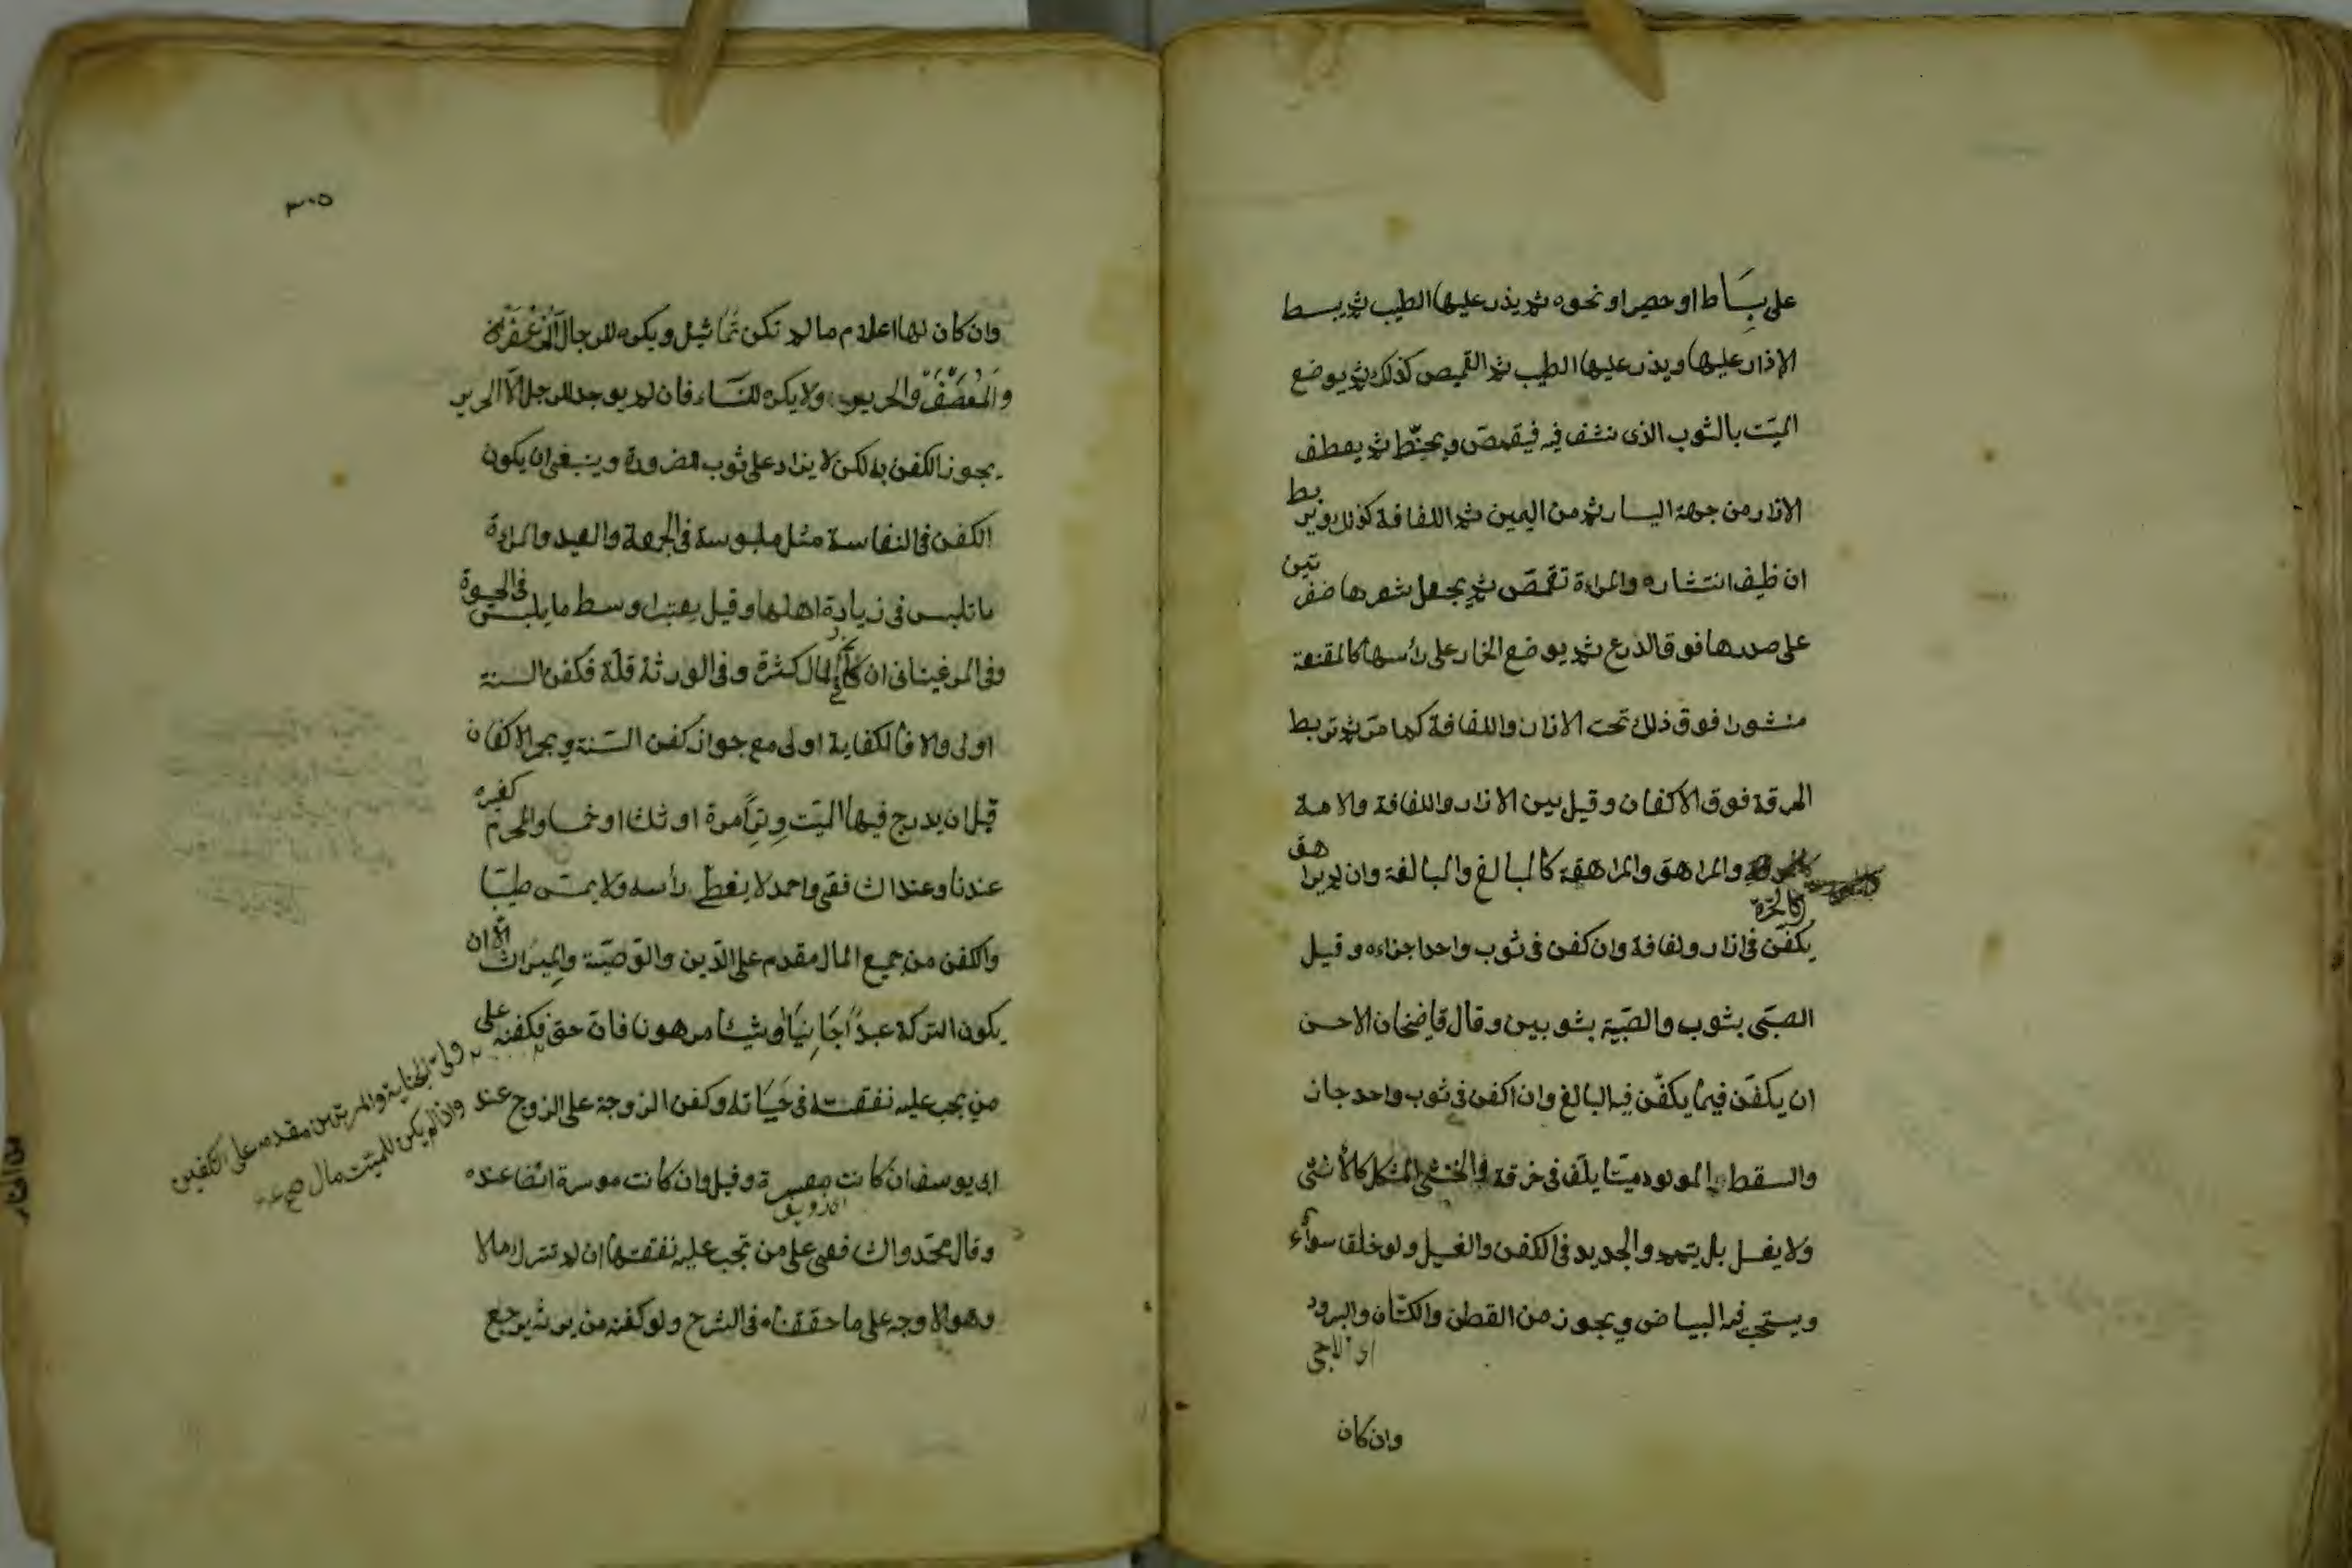 على بساط او حصير او نحوه ثم يذر عليها الطيب ثم يبسط
الازار عليها ويذر عليها الطيب ثم القميص كذلك ثم يوضع
الميت بالثوب الذى نشف فيه فيقمص ويحنط ثم يعطف
الازار من جهة اليسار ثم من اليمين ثم اللفافة كذلك ويربط
ان خيف انتشاره والمراءة تقمص ثم يجعل شعرها ضفيرتين
على صدرها فوق الدرع ثم يوضع الخمار على رأسها كالمقنعة
منشورا فوق ذلك تحت الازار واللفافة كما مر ثم تربط
الخرقة فوق الاكفان وقيل بين الازار واللفافة والامة
كالحرة والمراهق والمراهقة كالبالغ والبالغة وان لم يراهق
يكفن فى ازار ولفافة وان كفن فى ثوب واحد اجزاءه وقيل
الصبى بثوب والصبية بثوبين وقال قاضيخان الاحسن
ان يكفن فيما يكفن فيه البالغ وان اكفن فى ثوب واحد جاز
والسقط والمولود ميتا يلف فى خرقة والخنثى المشكل كالأنثى
ولا يغسل بل ييمم والجديد فى الكفن والغسيل ولو خلق سواء
ويستحب فيه البياض ويجوز من القطن والكتان والبرود
وان كان
٣٠٥
وان كان لها اعلام ما لم تكن تماثيل ويكره للرجال المزعفر
والمعصفر والحرير ولا يكره للنساء فان لم يوجد للرجل الا الحرير
يجوز الكفن به لكن لا يزاد على ثوب للضرورة وينبغى ان يكون
الكفن فى النفاسة مثل ملبوسه فى الجمعة والعيد والمراءة
ما تلبس فى زيارة اهلها وقيل يعتبر اوسط ما يلبس فى الحيوة
وفى المرغينانى ان كان فى المال كثرة وفى الورثة قلة فكفن السنة
اولى والا فالكفاية اولى مع جواز كفن السنة ويجمر الاكفان
قبل ان يدرج فيها الميت وترا مرة او ثلثا او خمسا والمحرم كغيره
عندنا وعند الشافعى واحمد لا يغطى رأسه ولا يمس طيبا
والكفن من جميع المال مقدم على الدين والوصية والميراث الا ان
يكون التركة عبدا جانيا او شيئا مرهونا فان حق
ولى الجناية والمرتهن مقدم على التكفين
وان لم يكن للميت مال
فكفنه على
من يجب عليه نفقته فى حياته وكفن الزوجة على الزوج عند
ابى يوسف ان كانت معسرة وقيل وان كانت موسرة ايضا عنده
وقال محمد والشافعى على من تجب عليه نفقتها ان لم تترك مالا
وهو الاوجه على ما حققناه فى الشرح ولو كفنه من يرثه يرجع